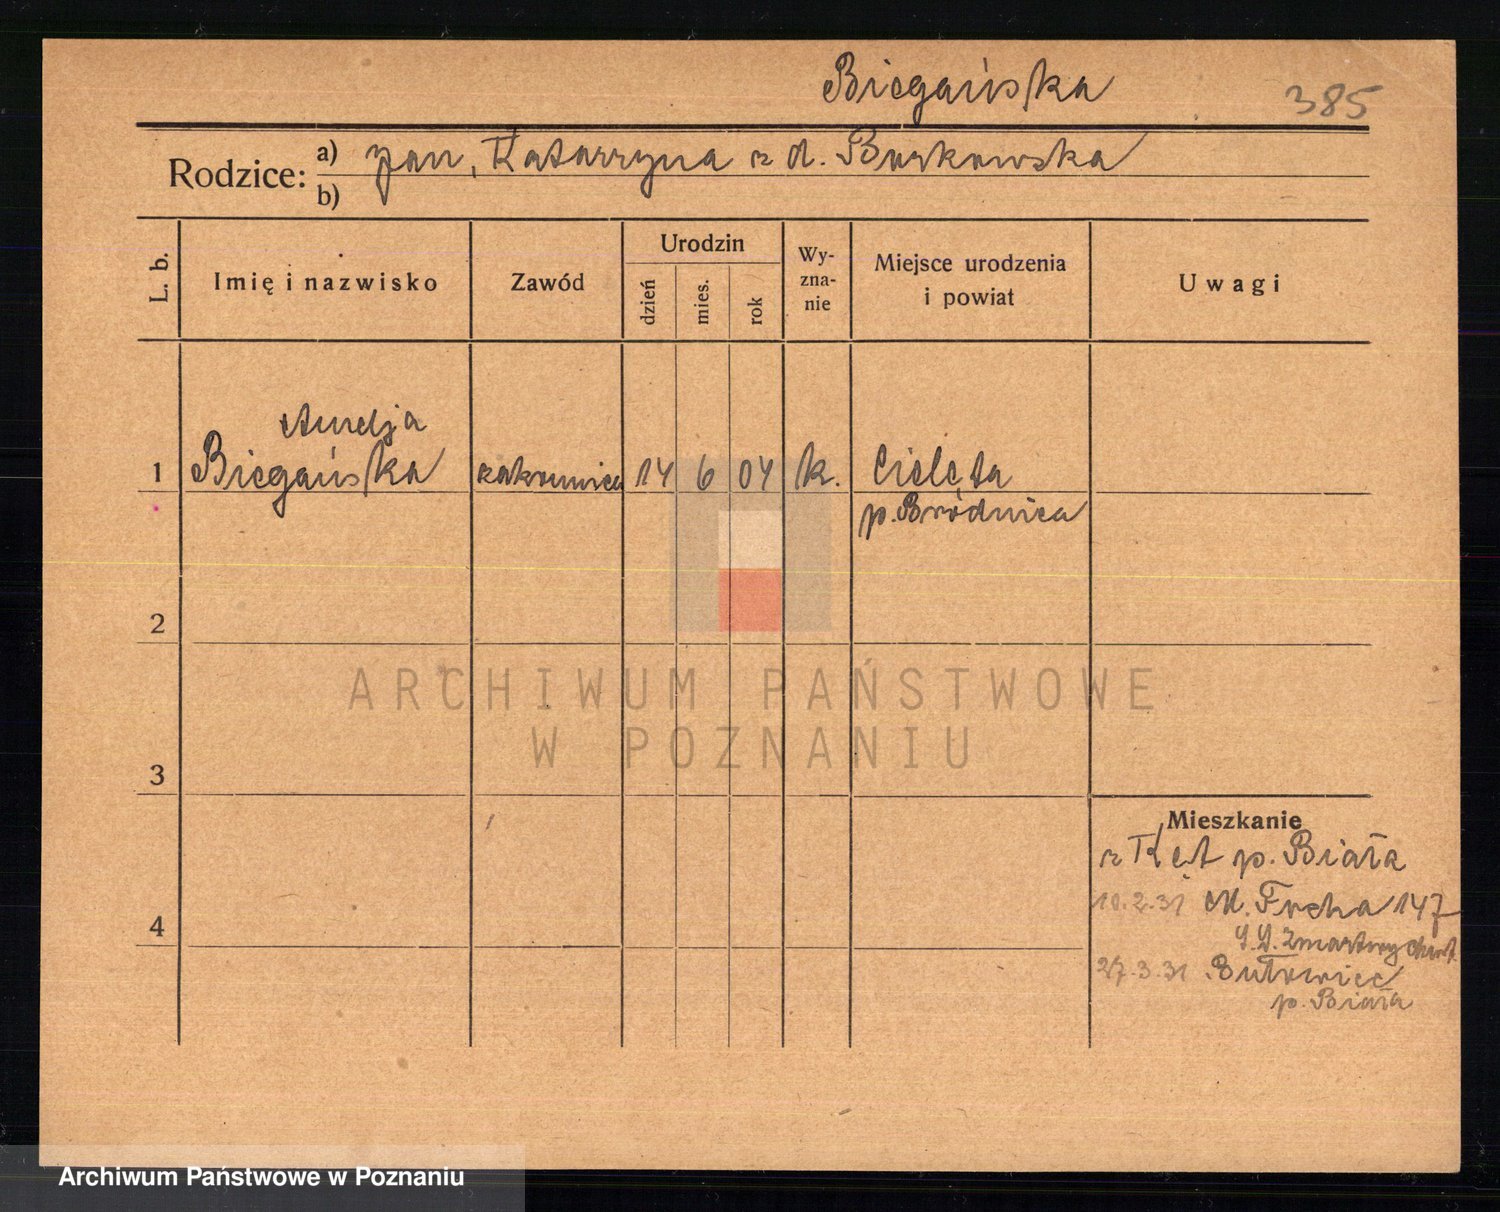 Biegańska
385
Rodzice: a) Jan, Katarzyna z d. Borkowska
b)
L. b.
Imię i nazwisko
Zawód
Urodzin
dzień
mies.
rok
Wy-
zna-
nie
Miejsce urodzenia
i powiat
Uwagi
Aurelja
1 Biegańska zakonnica 14 6 04 k. Cielęta
p. Brodnica
2
ARCHIWUM PAŃSTWOWE
W POZNANIU
3
4
Mieszkanie
z Kęt p. Biała
10.2.31 M. Focha 147
S.S. Zmartwychwst.
27.3.31 p. Biała
Archiwum Państwowe w Poznaniu